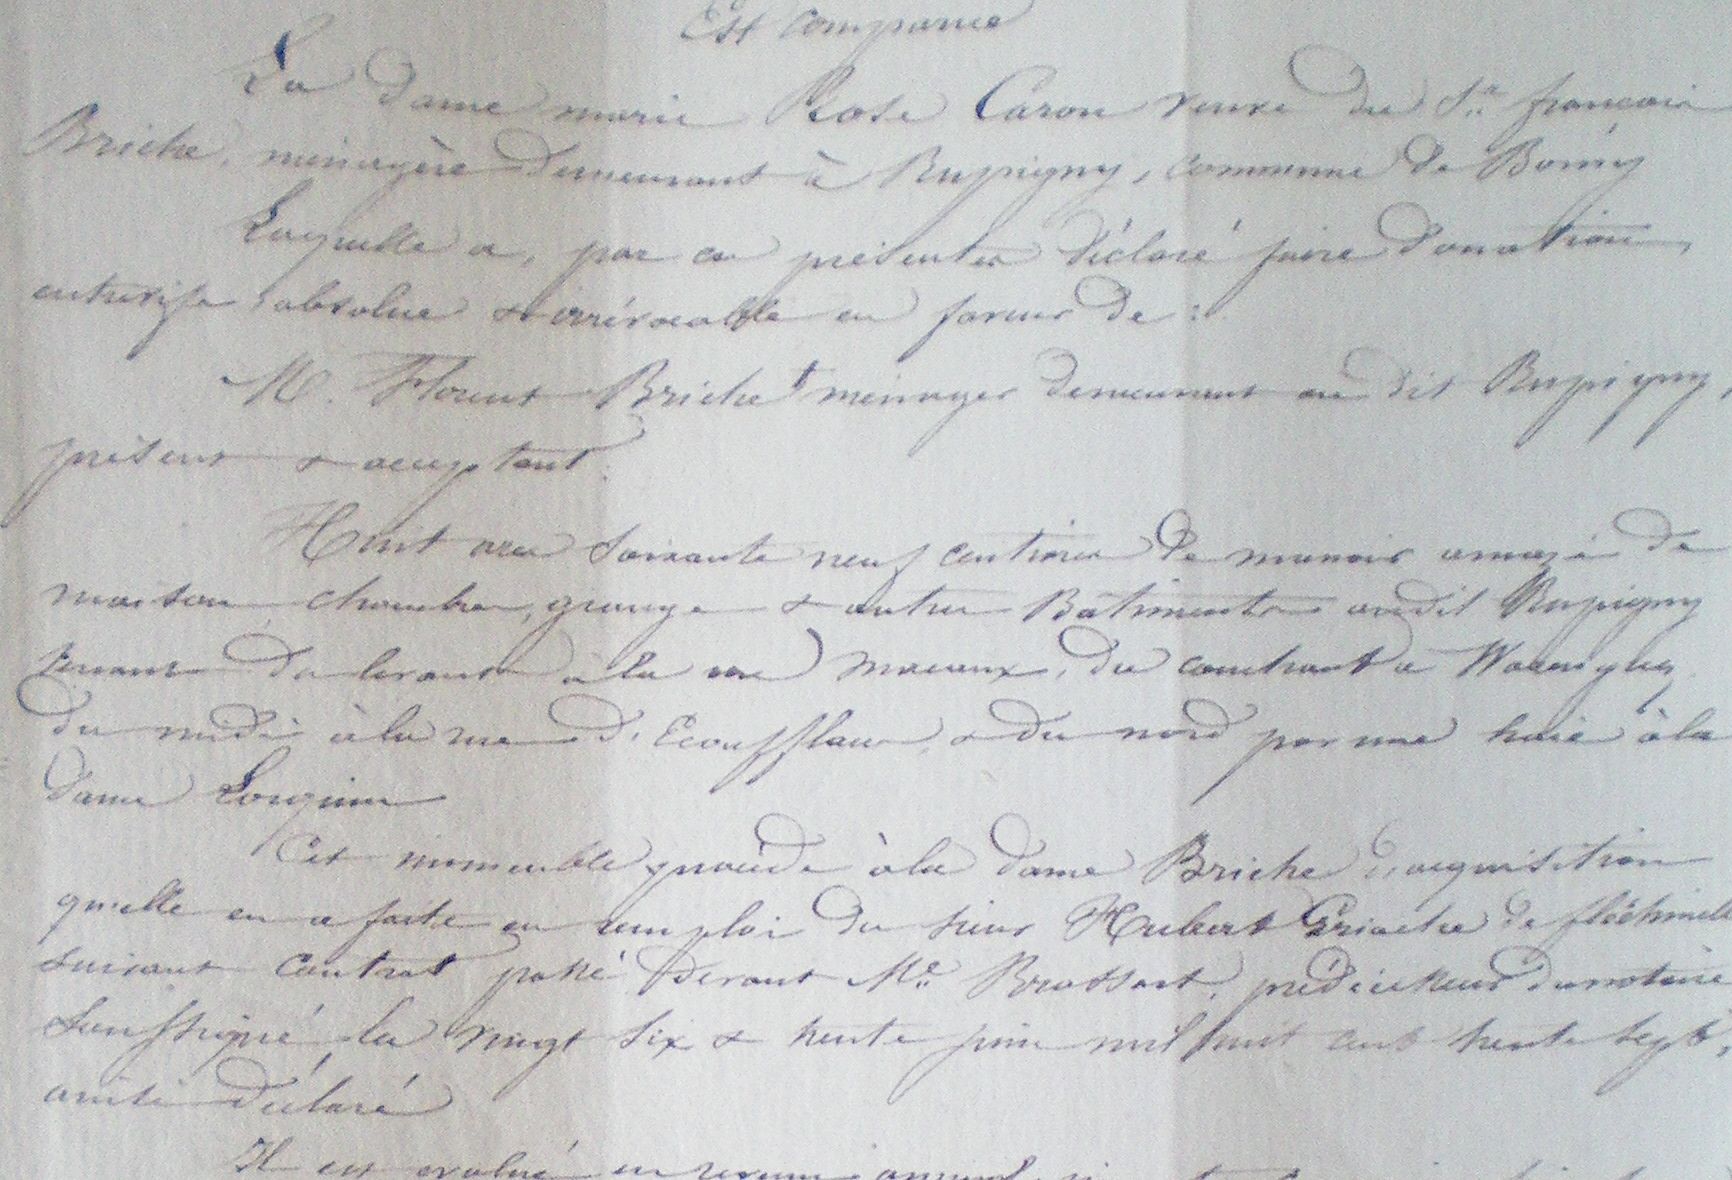 Est comparue
La dame marie Rose Caron veuve du Sr. françois
Briche, ménagère demeurant à Rupigny, commune de Bomy
Laquelle a, par ces présentes déclaré faire donation,
entrevifs absolue & irrévocable en faveur de :
M. Florent Briche ménager demeurant au dit Rupigny,
présent & acceptant.
Huit ares soixante neuf centiares de manoir amazé de
maison chambre, grange & autres Batiments audit Rupigny
tenant du levant à la rue du couchant a
du midi à la rue d' & du nord par une haie à la
dame
Cet immeuble procède à la dame Briche d'acquisition
qu'elle en a faite en remploi du sieur Hubert de fléchinelle
suivant contrat passé devant Me. Brassart, prédécesseur du notaire
soussigné les vingt six & trente juin mil huit cent trente sept,
ainsi déclaré
Il est évalué en revenu annuel